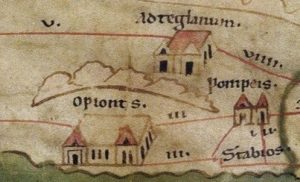 V.
Adteglanum.
VIIII.
Pompeis.
Oplontis.
III
III.
Stabios.